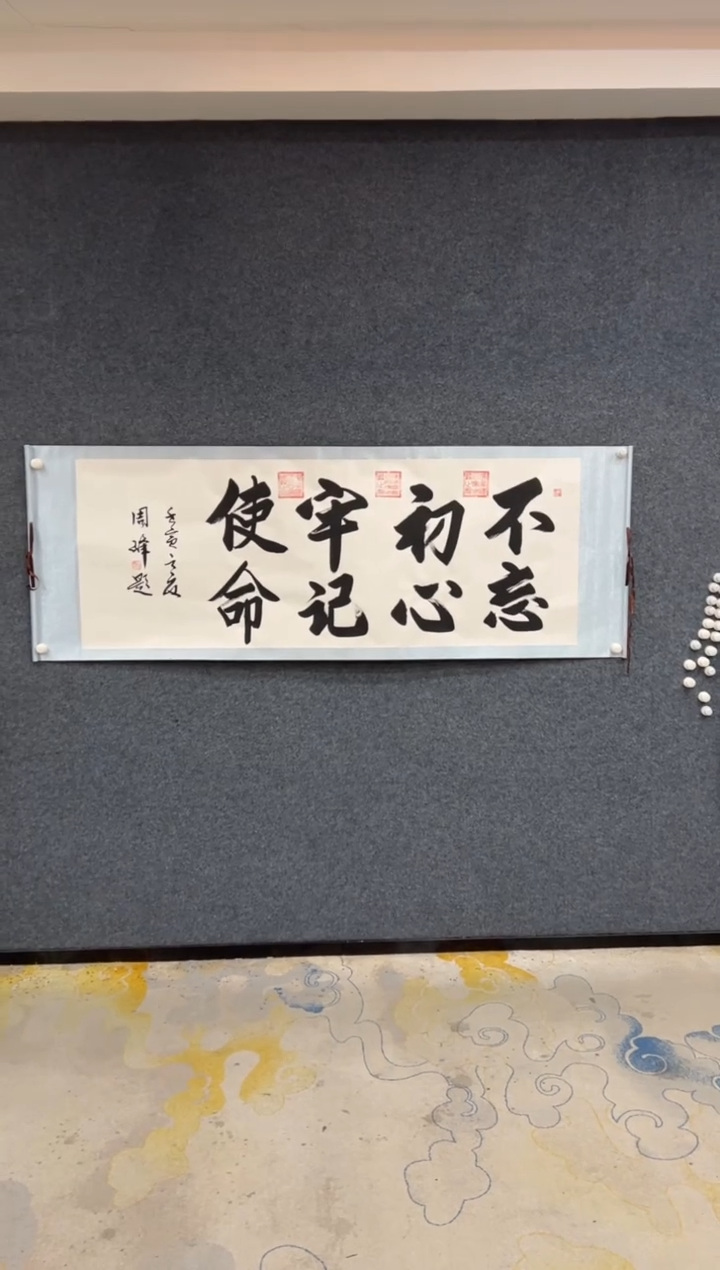 不忘
初心
牢记
使命
壬寅之夏
周峰题